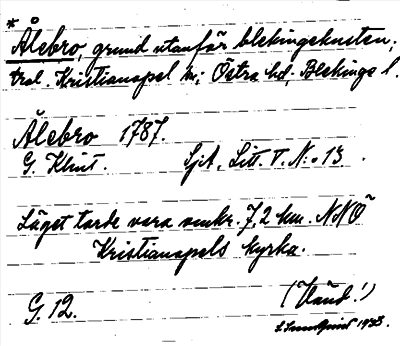 *
Ålebro, grund utanför blekingekusten;
trol. Kristianopel sn; Östra hd, Blekinge l.
Ålebro 1787.
G. Klint. Sjö, Litt. T. N:o 13.
Läget torde vara omkr. 7,2 km. NNÖ
Kristianopels kyrka.
G. 12. (Vänd!)
1933.